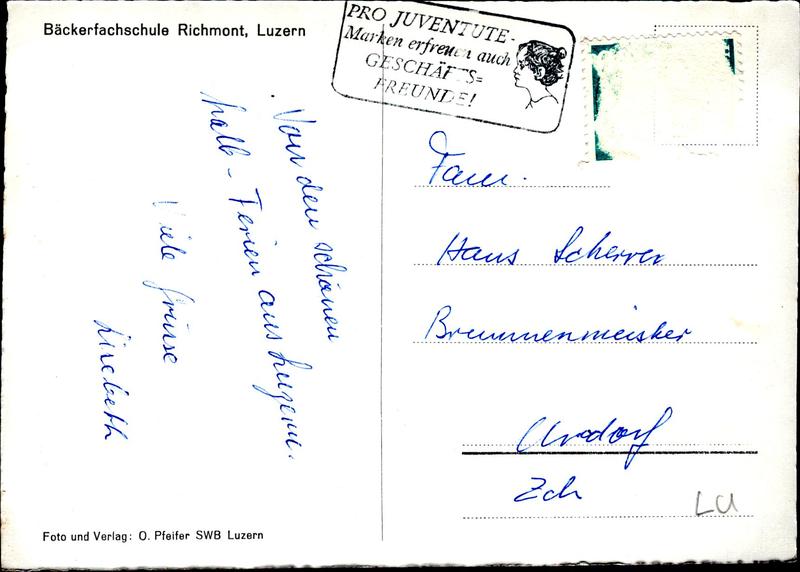 Bäckerfachschule Richmont, Luzern
PRO JUVENTUTE-
Marken erfreuen auch
GESCHÄFTS=
FREUNDE!
Von den schönen
halb-Ferien aus Luzern.
Viele Grüsse
Lisebeth
Fam.
Hans Scherrer
Brunnenmeister
Urdorf
Zch
LU
Foto und Verlag: O. Pfeifer SWB Luzern